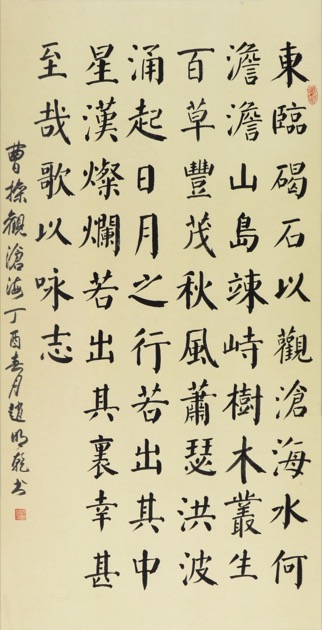 東臨碣石以觀滄海水何
澹澹山島竦峙樹木叢生
百草豐茂秋風蕭瑟洪波
涌起日月之行若出其中
星漢燦爛若出其裏幸甚
至哉歌以咏志
曹操觀滄海丁酉春月趙明乾书